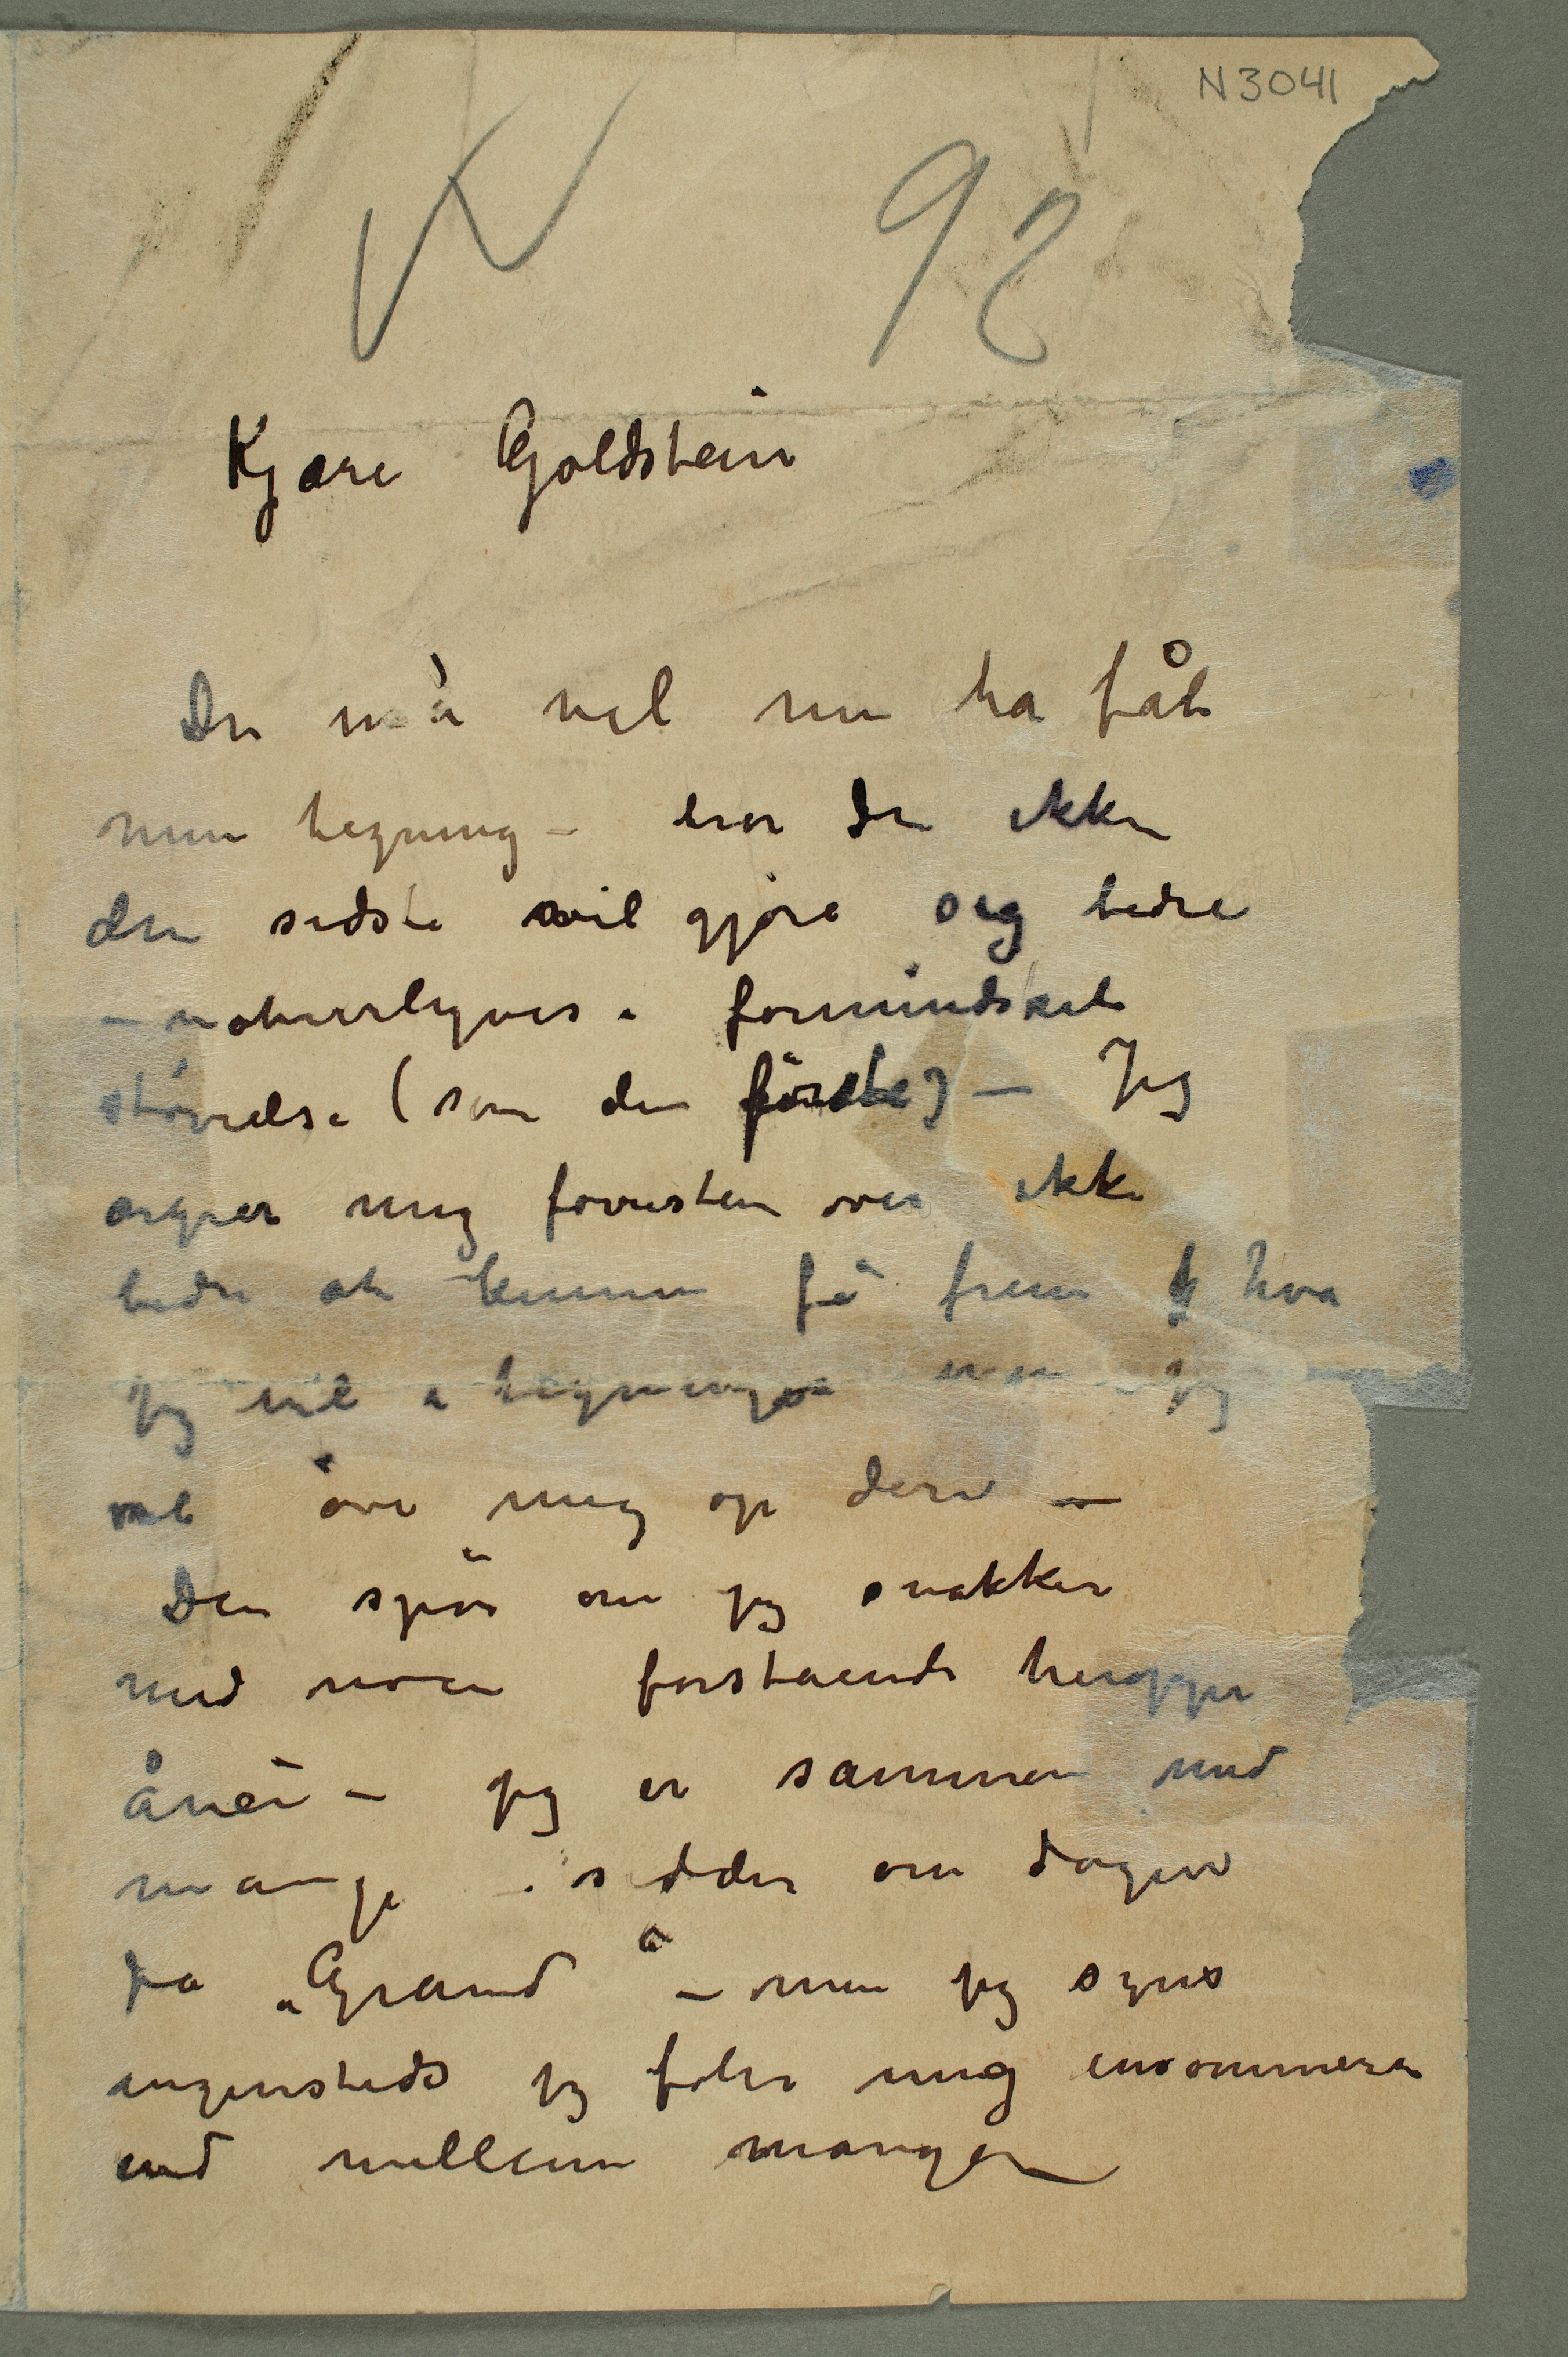 N 3041
V 92
Kjære Goldstein
Du må vel nu ha fåt
min tegning – tror Du ikke
den sidste vil gjøre sig bedre
– naturligvis i formindsket
størrelse (som den første) – Jeg
ærgrer mig forresten over ikke
bedre at kunne få frem hva
jeg vil i tegninger men jeg
vil øve mig op deri –
Du spör om jeg snakker
med noen forstående heroppe
ånei – jeg er sammen med
mange – sidder om dagen
på „Grand“ – men jeg synes
ingensteds jeg føler mig ensommere
end mellem mange